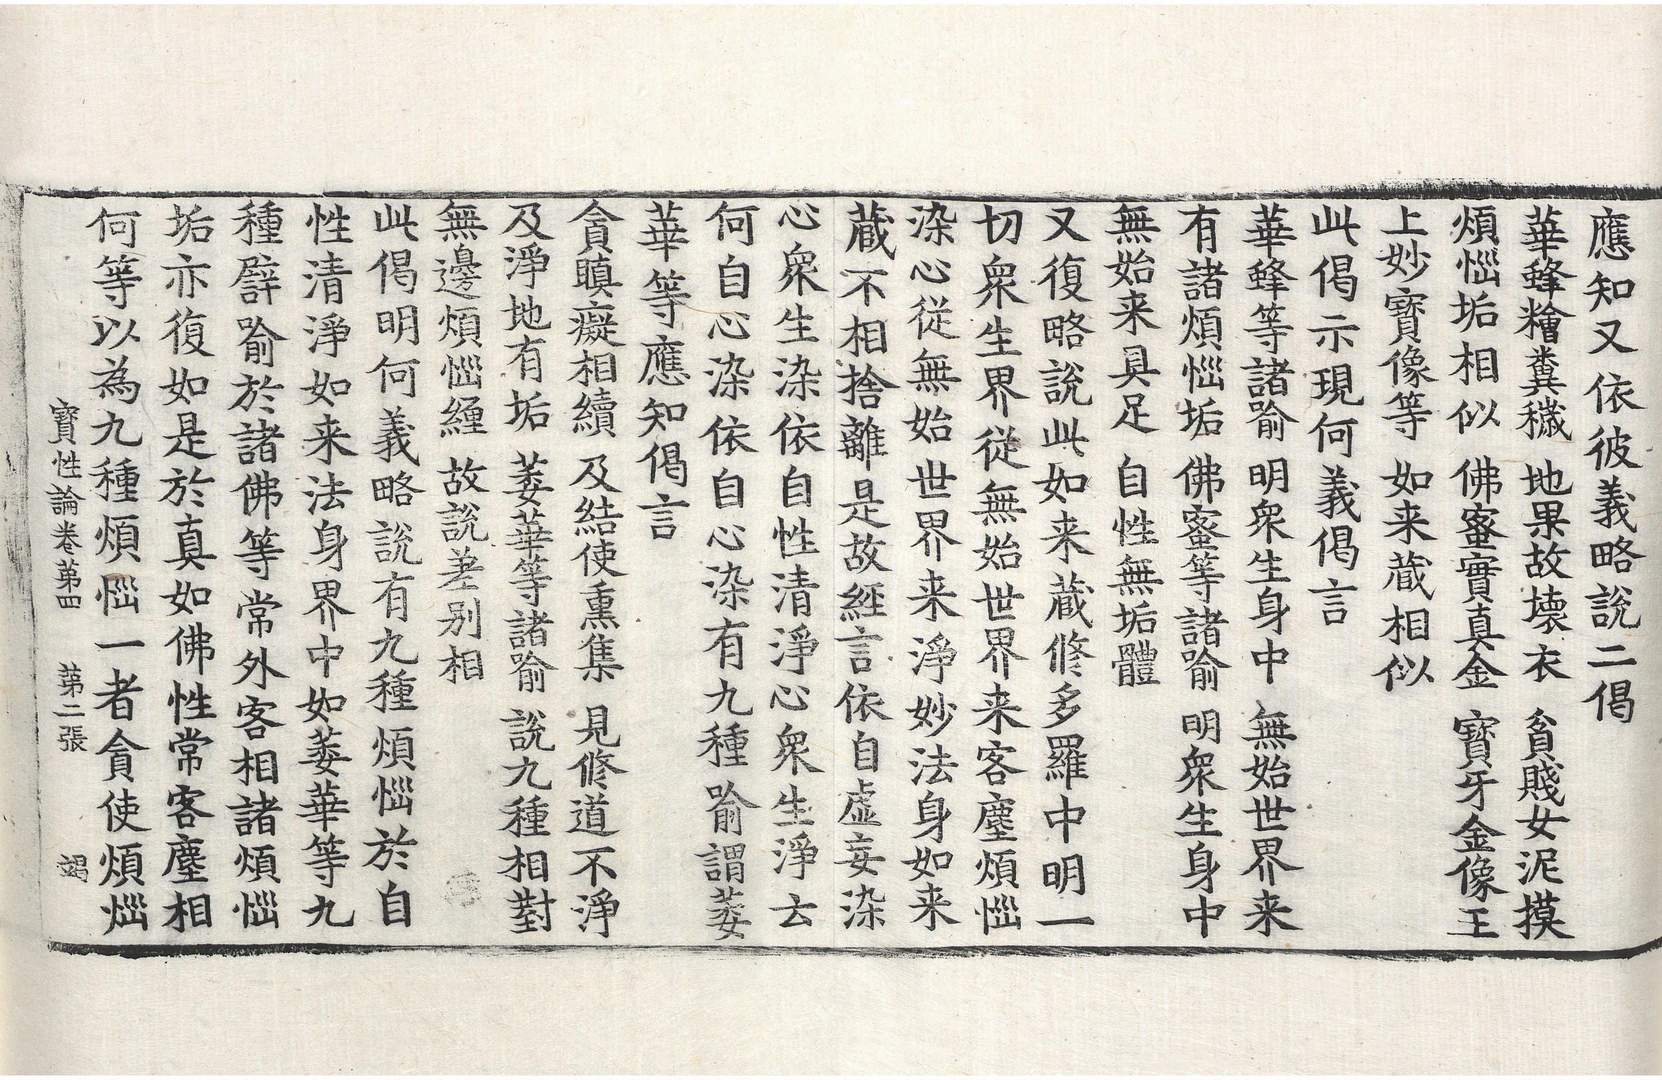 應知又依彼義略說二偈
華蜂䊪糞穢 地果故壞衣 貧賤女泥摸
煩惱垢相似 佛蜜實真金 寶牙金像王
上妙寶像等 如来蔵相似
此偈示現何義偈言
華蜂等諸喻 明衆生身中 無始世界来
有諸煩惱垢 佛蜜等諸喻 明衆生身中
無始来具足 自性無垢體
又復略說此如来蔵修多羅中明一
切衆生界從無始世界来客塵煩惱
染心從無始世界来淨妙法身如来
蔵不相捨離是故經言依自虛妄染
心衆生染依自性清淨心衆生淨云
何自心染依自心染有九種喻謂萎
華等應知偈言
貪瞋癡相續 及結使熏集 見修道不淨
及淨地有垢 萎華等諸喻 說九種相對
無邊煩惱纏 故說差別相
此偈明何義略說有九種煩惱於自
性清淨如来法身界中如萎華等九
種譬喻於諸佛等常外客相諸煩惱
垢亦復如是於真如佛性常客塵相
何等以為九種煩惱一者貪使煩惱
寶性論卷第四 第二張 竭